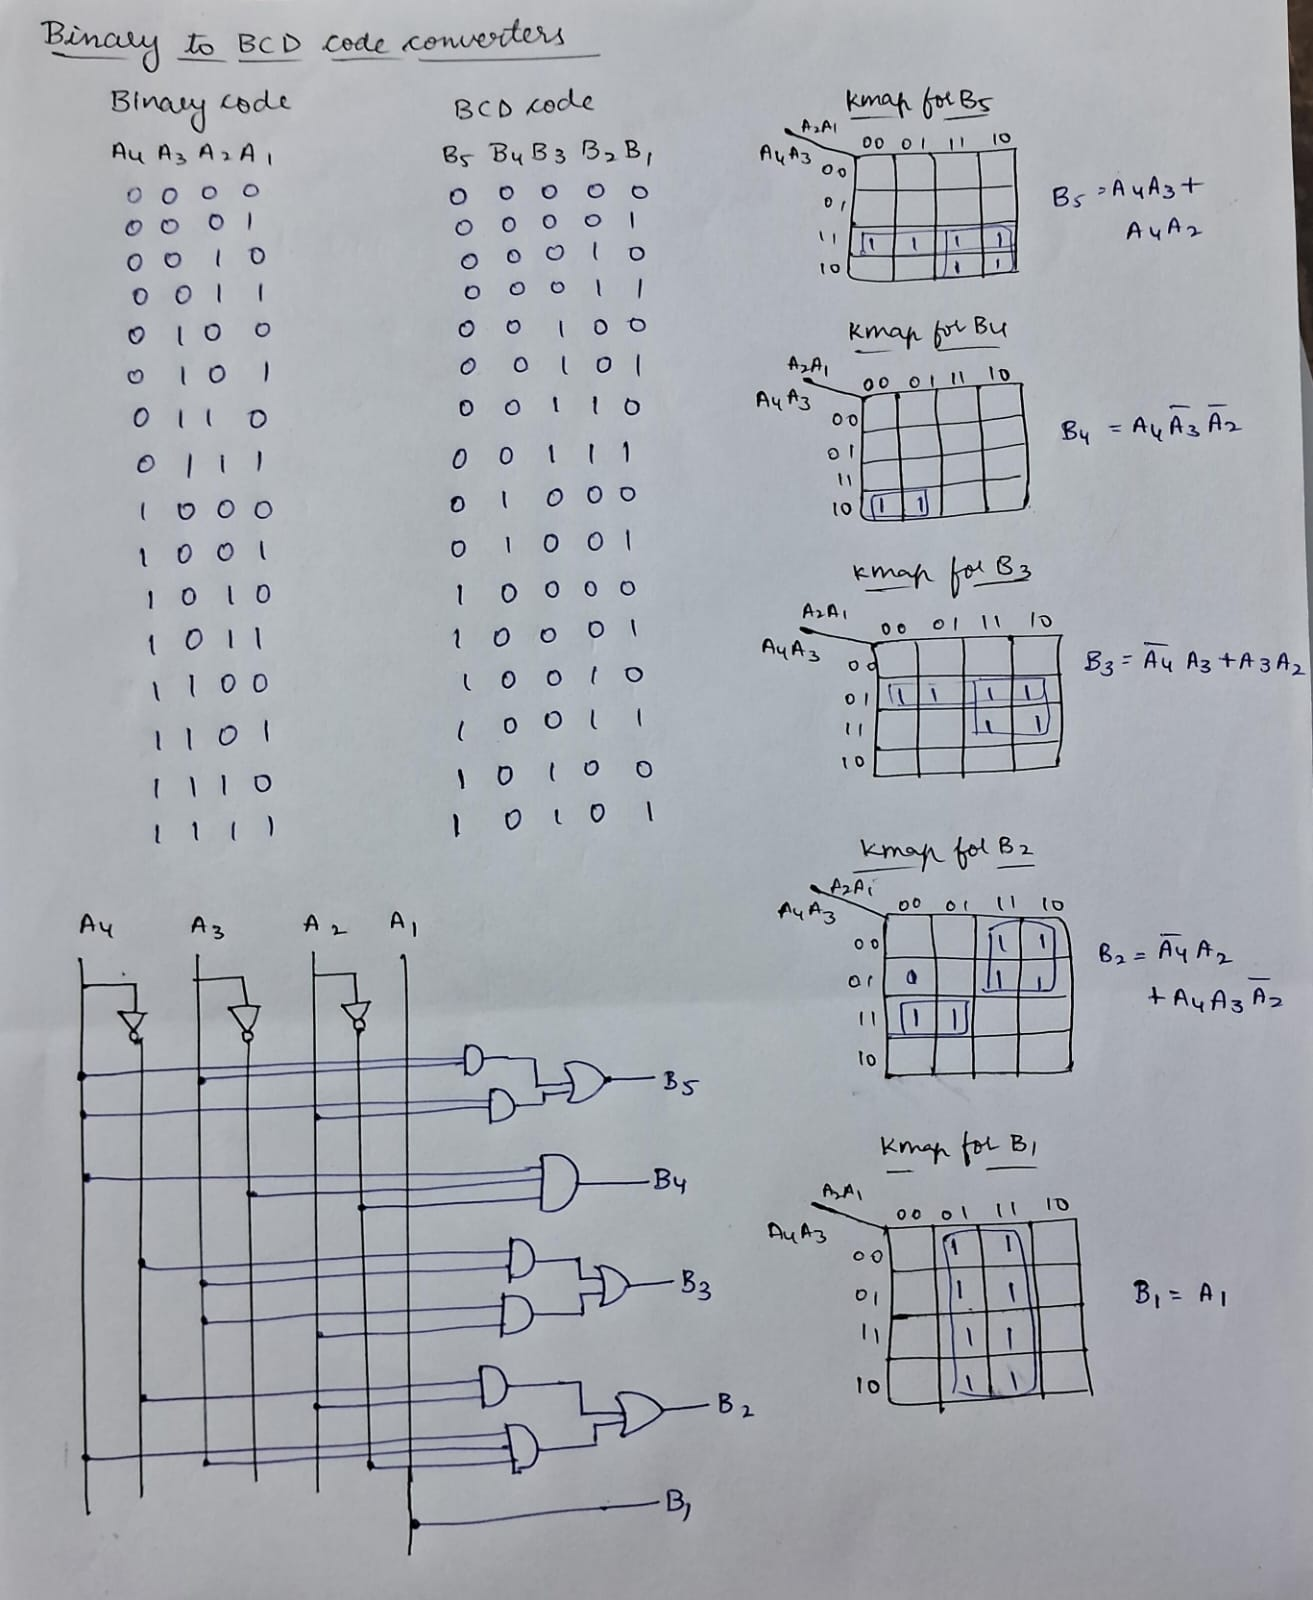 Binary to BCD code converters
Binary code
A4 A3 A2 A1
0 0 0 0
0 0 0 1
0 0 1 0
0 0 1 1
0 1 0 0
0 1 0 1
0 1 1 0
0 1 1 1
1 0 0 0
1 0 0 1
1 0 1 0
1 0 1 1
1 1 0 0
1 1 0 1
1 1 1 0
1 1 1 1
BCD code
B5 B4 B3 B2 B1
0 0 0 0 0
0 0 0 0 1
0 0 0 1 0
0 0 0 1 1
0 0 1 0 0
0 0 1 0 1
0 0 1 1 0
0 0 1 1 1
0 1 0 0 0
0 1 0 0 1
1 0 0 0 0
1 0 0 0 1
1 0 0 1 0
1 0 0 1 1
1 0 1 0 0
1 0 1 0 1
kmap for B5
A2A1
A4A3
00 01 11 10
00
01
11 1 1 1 1
10 1 1
B5 = A4A3 +
A4A2
kmap for B4
A2A1
A4A3
00 01 11 10
00
01
11
10 1 1
B4 = A4 A̅3 A̅2
kmap for B3
A2A1
A4A3
00 01 11 10
00
01 1 1 1 1
11 1 1
10
B3 = A̅4 A3 + A3A2
kmap for B2
A2A1
A4A3
00 01 11 10
00 1 1
01 0 1 1
11 1 1
10
B2 = A̅4 A2
+ A4A3 A̅2
kmap for B1
A2A1
A4A3
00 01 11 10
00 1 1
01 1 1
11 1 1
10 1 1
B1 = A1
A4 A3 A2 A1
B5
B4
B3
B2
B1